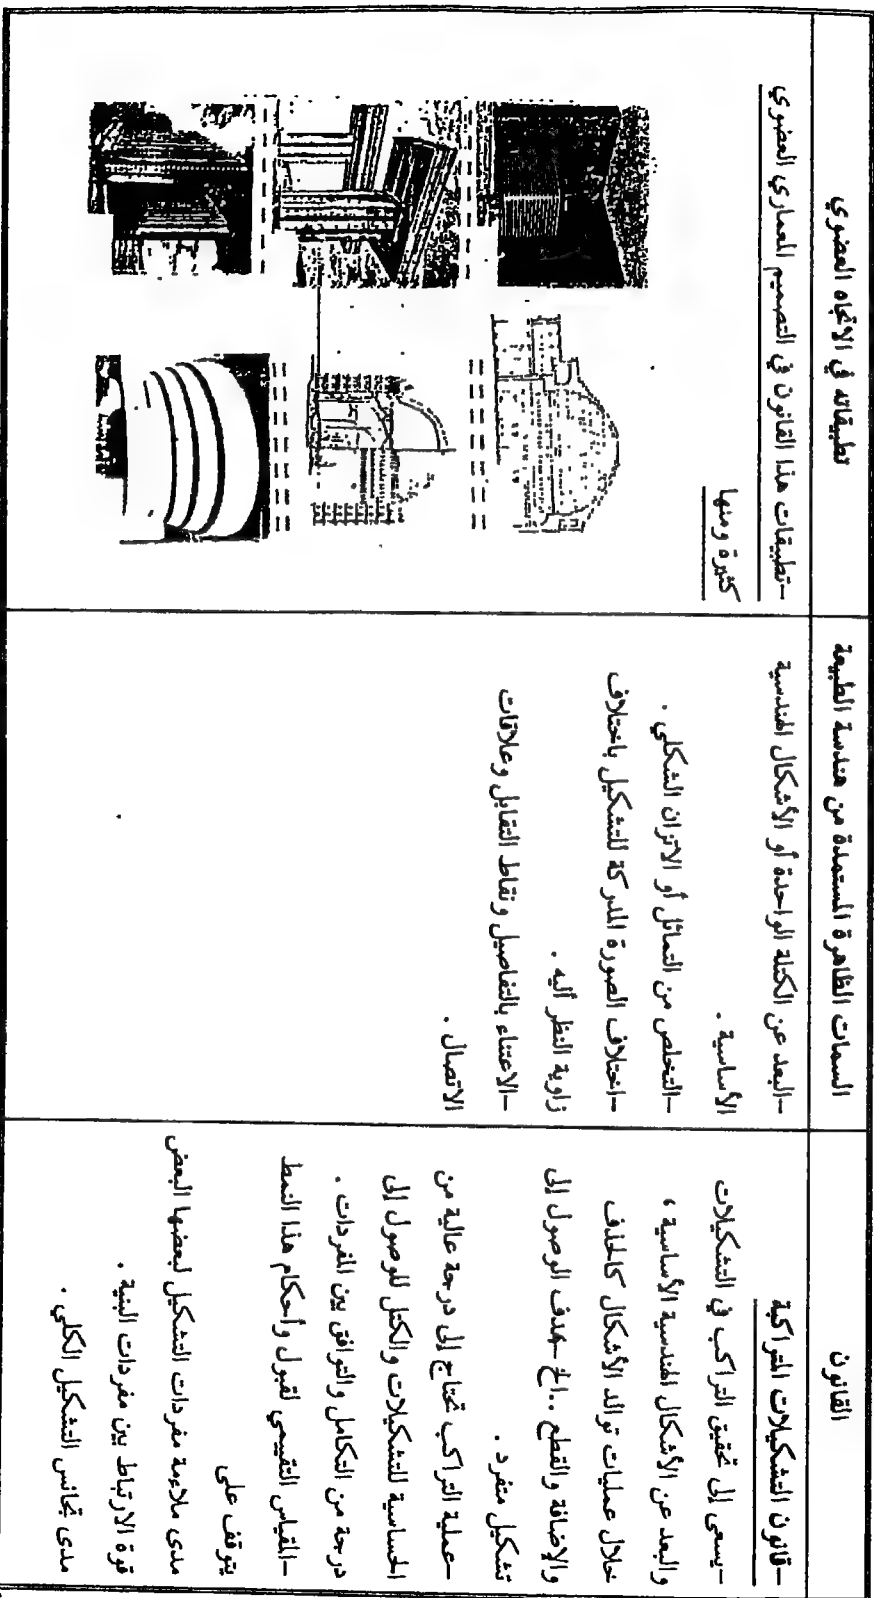 القانون
السمات الظاهرة المستمدة من هندسة الطبيعة
تطبيقاته في الاتجاه العضوي
-قانون التشكيلات المتراكبة
-يسعى إلى تحقيق التراكب في التشكيلات
والبعد عن الأشكال الهندسية الأساسية ،
خلال عمليات توالد الأشكال كالحذف
والإضافة والقطع ..الخ -بهدف الوصول إلى
تشكيل متفرد .
-عملية التراكب تحتاج إلى درجة عالية من
الحساسية للتشكيلات والكتل للوصول إلى
درجة من التكامل والتوافق بين المفردات .
-المقياس التقييمي لقبول وأحكام هذا النمط
يتوقف على
مدى ملاءمة مفردات التشكيل لبعضها البعض
قوة الارتباط بين مفردات البنية .
مدى تجانس التشكيل الكلي .
-البعد عن الكتلة الواحدة أو الأشكال الهندسية
الأساسية .
-التخلص من التماثل أو الاتزان الشكلي .
-اختلاف الصورة المدركة للتشكيل باختلاف
زاوية النظر أليه .
-الاعتناء بالتفاصيل ونقاط التقابل وعلاقات
الاتصال .
-تطبيقات هذا القانون في التصميم المعماري العضوي
كثيرة ومنها